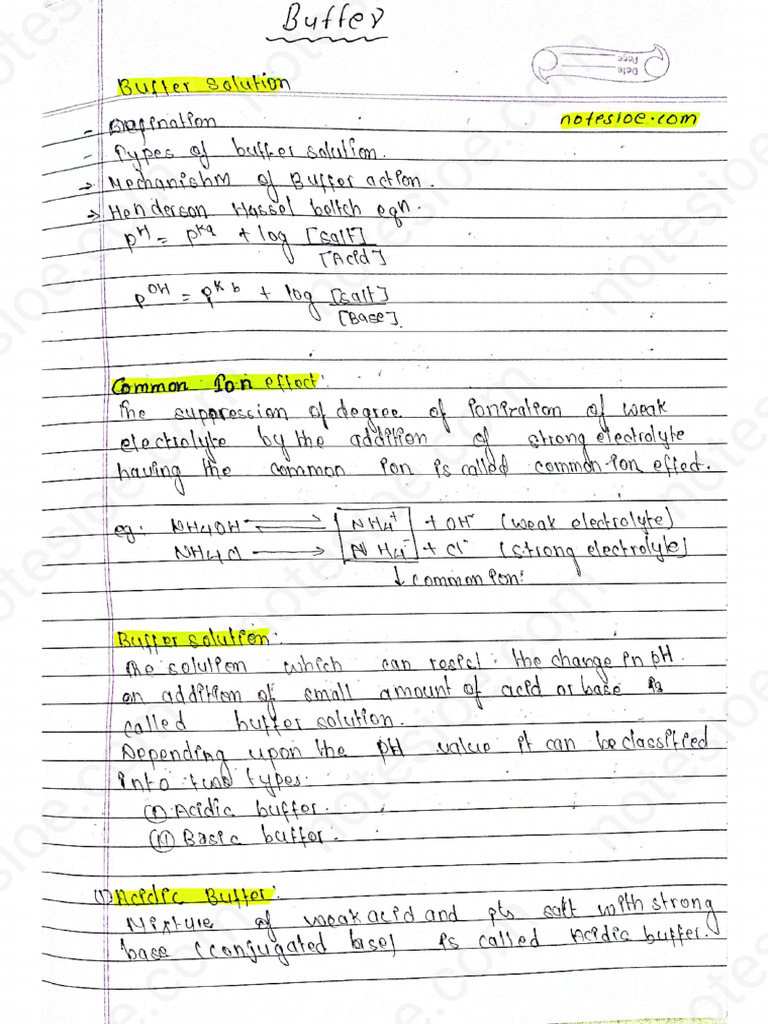 Buffer
Buffer solution
Date
Page
notesioe.com
- Defination
- Types of buffer solution.
→ Mechanishm of Buffer action.
→ Henderson Hassel beltch eqn.
pH = pKa + log [salt]
[Acid]
pOH = pKb + log [salt]
[Base].
Common Ion effect:
The suppression of degree of ionization of weak
electrolyte by the addition of strong electrolyte
having the common ion is called common-ion effect.
eg: NH4OH ⇌ NH4+ + OH- (weak electrolyte)
NH4Cl → NH4- + Cl- (strong electrolyte)
↓ common ion:
Buffer solution:
The solution which can resist the change in pH
on addition of small amount of acid or base is
called buffer solution.
Depending upon the pH value it can be classified
into two types:
(I) Acidic buffer.
(II) Basic buffer.
(I) Acidic Buffer:
Mixture of weak acid and its salt with strong
base (conjugated base) is called Acidic buffer.